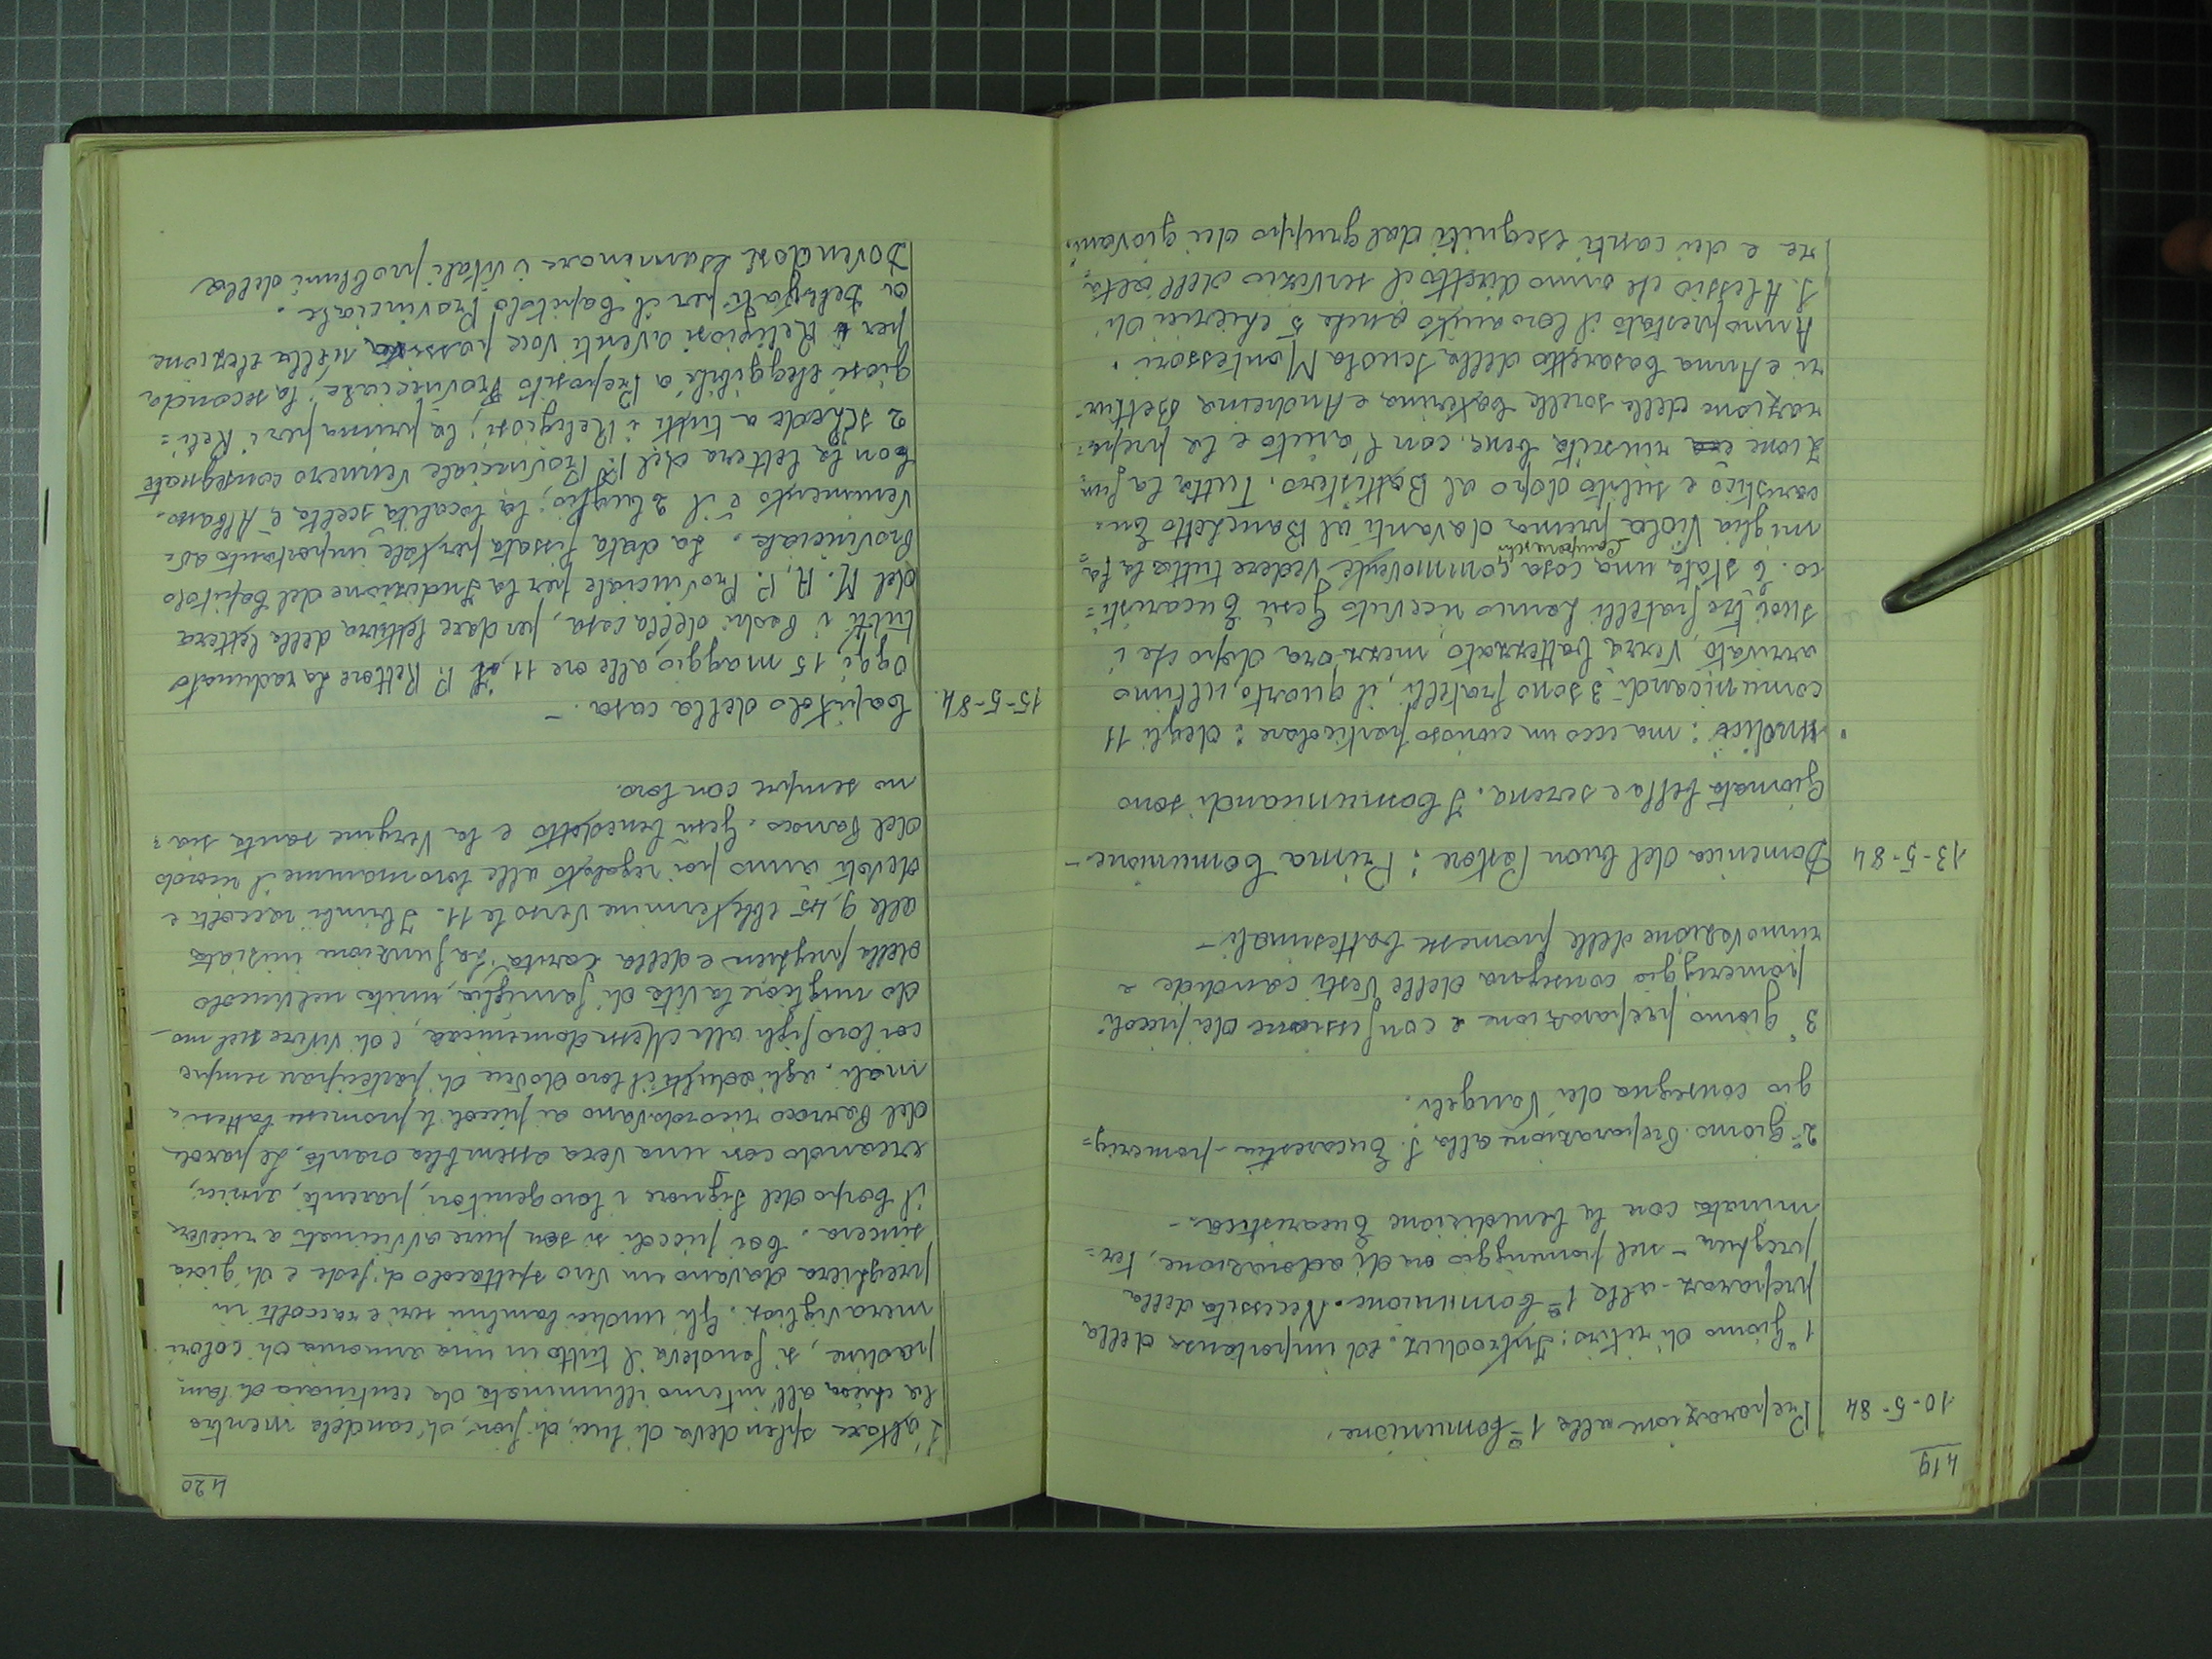 419
10-5-84 Preparazione alla 1ª Comunione.
1° Giorno di ritiro: Introduz. ed importanza della
preparaz. alla 1ª Comunione. Necessità della
preghiera - nel pomeriggio ora di adorazione, ter=
minata con la benedizione Eucaristica. -
2° giorno. Preparazione alla S. Eucarestia - pomerig=
gio consegna dei Vangeli.
3° giorno preparazione e confessione dei piccoli
pomeriggio consegna delle vesti candide e
rinnovazione delle promesse battesimali -
13-5-84 Domenica del buon Pastore: Prima Comunione -
Giornata bella e serena. I Comunicandi sono
undici: ma ecco un curioso particolare: degli 11
comunicandi 3 sono fratelli, il quarto, ultimo
arrivato, verrà battezzato mezz'ora dopo che i
suoi tre fratelli hanno ricevuto Gesù Eucaristi=
co. È stata una cosa commovente vedere tutta la fa=
miglia Viola prima davanti al Banchetto Eu=
caristico e subito dopo al Battistero. Tutta la fun
zione è riuscita bene con l'aiuto e la prepa=
razione delle sorelle Caterina e Andreina Bettin
ri e Anna Casaretto della Scuola Montessori.
Anno prestato il loro aiuto anche 5 chierici di
S. Alessio che anno diretto il servizio dell'alta=
re e dei canti eseguiti dal gruppo dei giovani.
420
L'altare splendeva di luci, di fiori, di candele mentre
la chiesa all'interno illuminata da centinaia di lam
padine, si fondeva il tutto in una armonia di colori
meravigliosi. Gli undici bambini seri e raccolti in
preghiera davano un vero spettacolo di fede e di gioia
sincera. Coi piccoli si son pure avvicinati a ricevere
il Corpo del Signore i loro genitori, parenti, amici,
creando così una vera assemblea orante. Le parole
del Parroco ricordavano ai piccoli le promesse battesi=
mali, agli adulti il loro dovere di partecipare sempre
coi loro figli alla Messa domenicale, e di vivere nel mo-
do migliore la vita di famiglia, unita nel vincolo
della preghiera e della Carità. La funzione iniziata
alle 9,45 ebbe termine verso le 11. I bimbi raccolti e
devoti anno poi regalato alle loro mamme il ricordo
del Parroco. Gesù benedetto e la Vergine santa sia=
no sempre con loro.
15-5-84. Capitolo della casa. -
Oggi, 15 maggio, alle ore 11, il P. Rettore ha radunato
tutti i Padri della casa, per dare lettura della lettera
del M. R. P. Provinciale per la Indizione del Capitolo
Provinciale. La data fissata per tale importante av=
venimento è il 2 luglio; la località scelta è Albano.
Con la lettera del P. Provinciale vennero consegnate
2 schede a tutti i Religiosi; la prima per i Reli=
giosi eleggibili a Preposito Provinciale; la seconda
per i Religiosi aventi voce passiva nella elezione
a Delegati per il Capitolo Provinciale.
Dovendosi esaminare i vitali problemi della